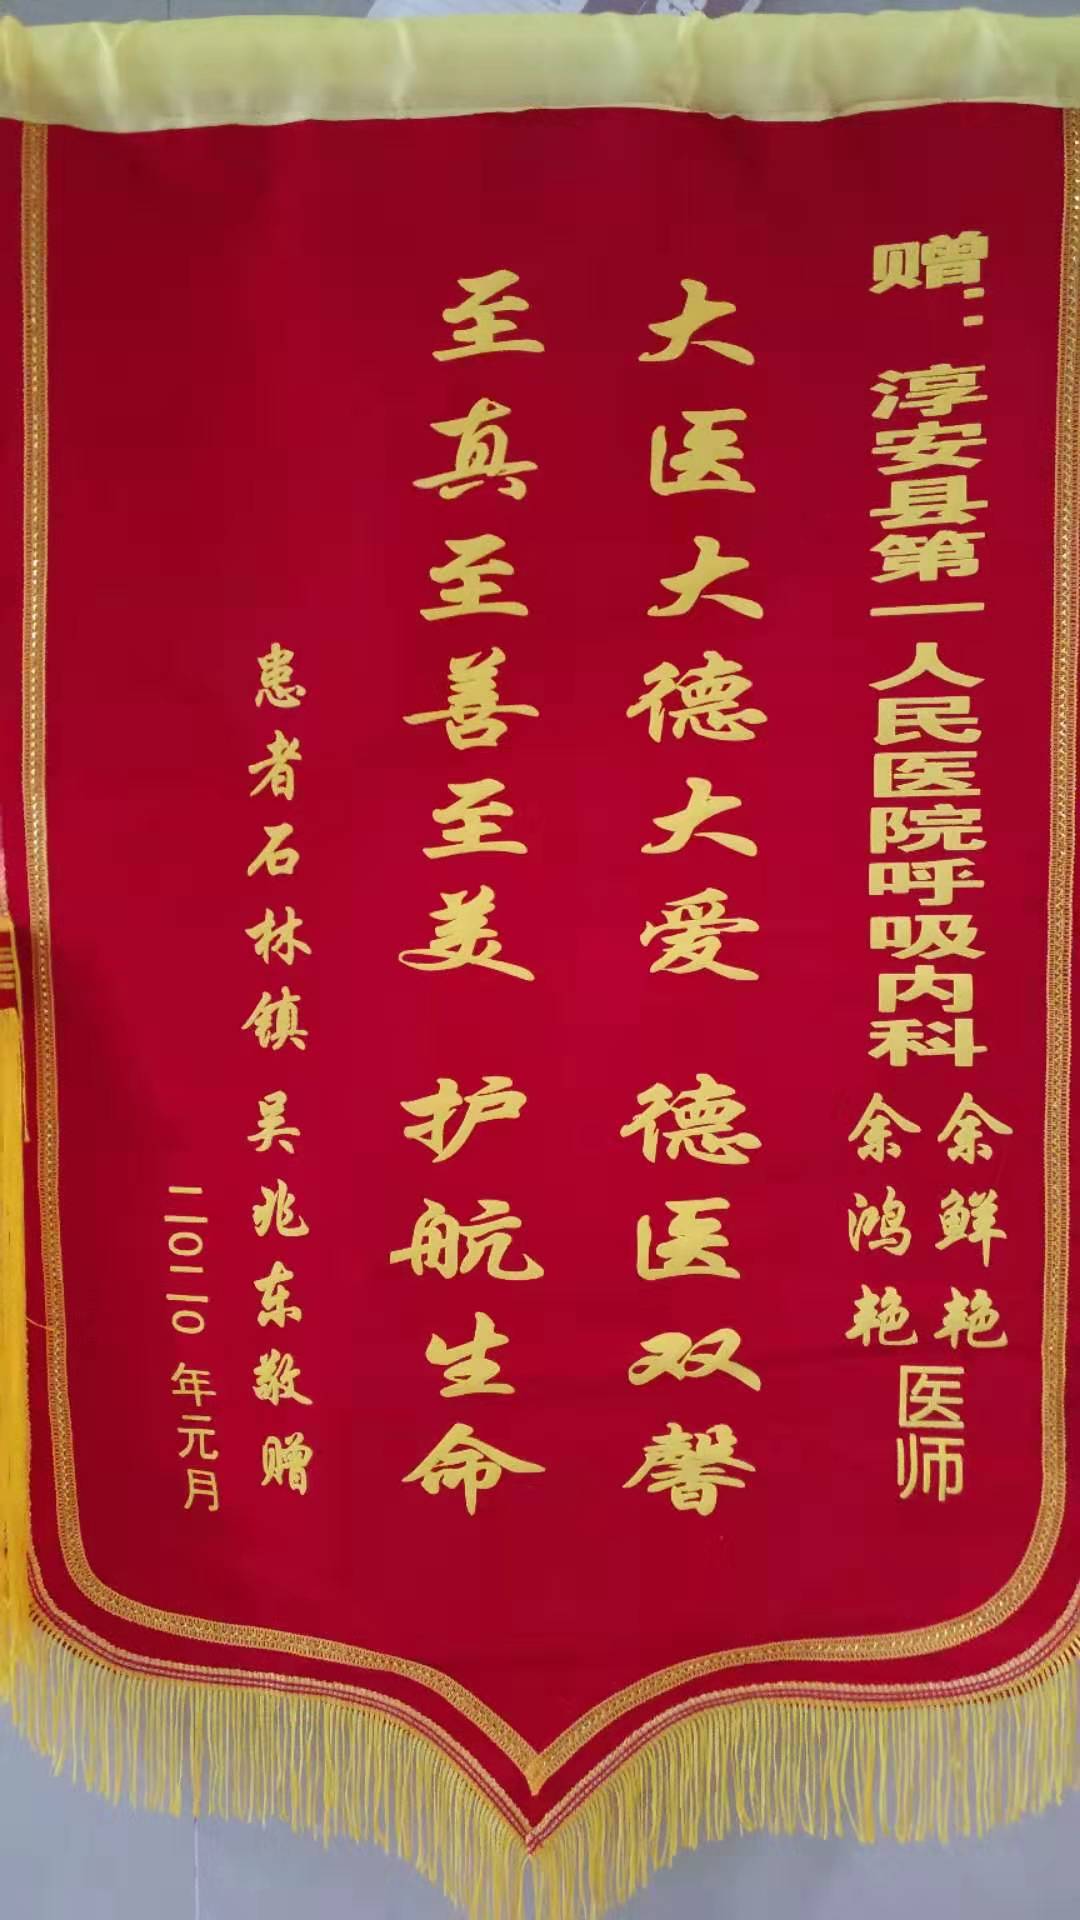 赠：淳安县第一人民医院呼吸内科
余鲜艳
余鸿艳
医师
大医大德大爱 德医双馨
至真至善至美 护航生命
患者石林镇吴兆东敬赠
二〇二〇年元月